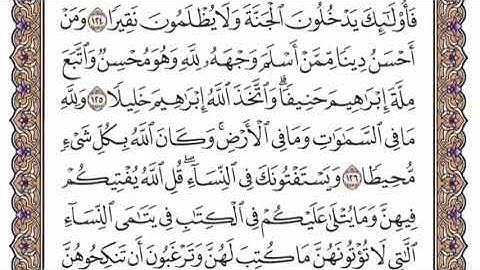 فَأُو۟لَٰٓئِكَ يَدْخُلُونَ ٱلْجَنَّةَ وَلَا يُظْلَمُونَ نَقِيرًا ١٢٤ وَمَنْ
أَحْسَنُ دِينًا مِّمَّنْ أَسْلَمَ وَجْهَهُۥ لِلَّهِ وَهُوَ مُحْسِنٌ وَٱتَّبَعَ
مِلَّةَ إِبْرَٰهِيمَ حَنِيفًا ۗ وَٱتَّخَذَ ٱللَّهُ إِبْرَٰهِيمَ خَلِيلًا ١٢٥ وَلِلَّهِ
مَا فِى ٱلسَّمَٰوَٰتِ وَمَا فِى ٱلْأَرْضِ ۚ وَكَانَ ٱللَّهُ بِكُلِّ شَىْءٍ
مُّحِيطًا ١٢٦ وَيَسْتَفْتُونَكَ فِى ٱلنِّسَآءِ ۖ قُلِ ٱللَّهُ يُفْتِيكُمْ
فِيهِنَّ وَمَا يُتْلَىٰ عَلَيْكُمْ فِى ٱلْكِتَٰبِ فِى يَتَٰمَى ٱلنِّسَآءِ
ٱلَّٰتِى لَا تُؤْتُونَهُنَّ مَا كُتِبَ لَهُنَّ وَتَرْغَبُونَ أَن تَنكِحُوهُنَّ